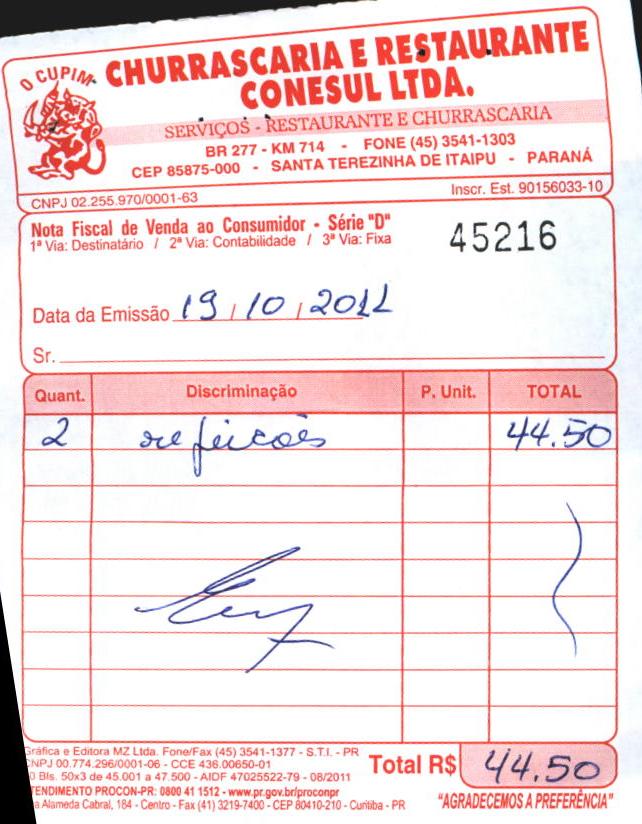 O CUPIM
CHURRASCARIA E RESTAURANTE
CONESUL LTDA.
SERVIÇOS - RESTAURANTE E CHURRASCARIA
BR 277 - KM 714 - FONE (45) 3541-1303
CEP 85875-000 - SANTA TEREZINHA DE ITAIPU - PARANÁ
CNPJ 02.255.970/0001-63 Inscr. Est. 90156033-10
Nota Fiscal de Venda ao Consumidor - Série "D"
1ª Via: Destinatário / 2ª Via: Contabilidade / 3ª Via: Fixa
45216
Data da Emissão 19 / 10 / 2011
Sr.
Quant. Discriminação P. Unit. TOTAL
2 refeicões 44.50
Gráfica e Editora MZ Ltda. Fone/Fax (45) 3541-1377 - S.T.I. - PR
CNPJ 00.774.296/0001-06 - CCE 436.00650-01
0 Bls. 50x3 de 45.001 a 47.500 - AIDF 47025522-79 - 08/2011
TENDIMENTO PROCON-PR: 0800 41 1512 - www.pr.gov.br/proconpr
a Alameda Cabral, 184 - Centro - Fax (41) 3219-7400 - CEP 80410-210 - Curitiba - PR
Total R$ 44.50
"AGRADECEMOS A PREFERÊNCIA"